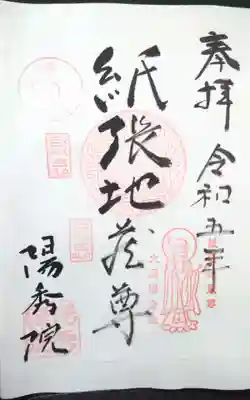 奉拝
令和五年
紙張地蔵尊
陽秀院